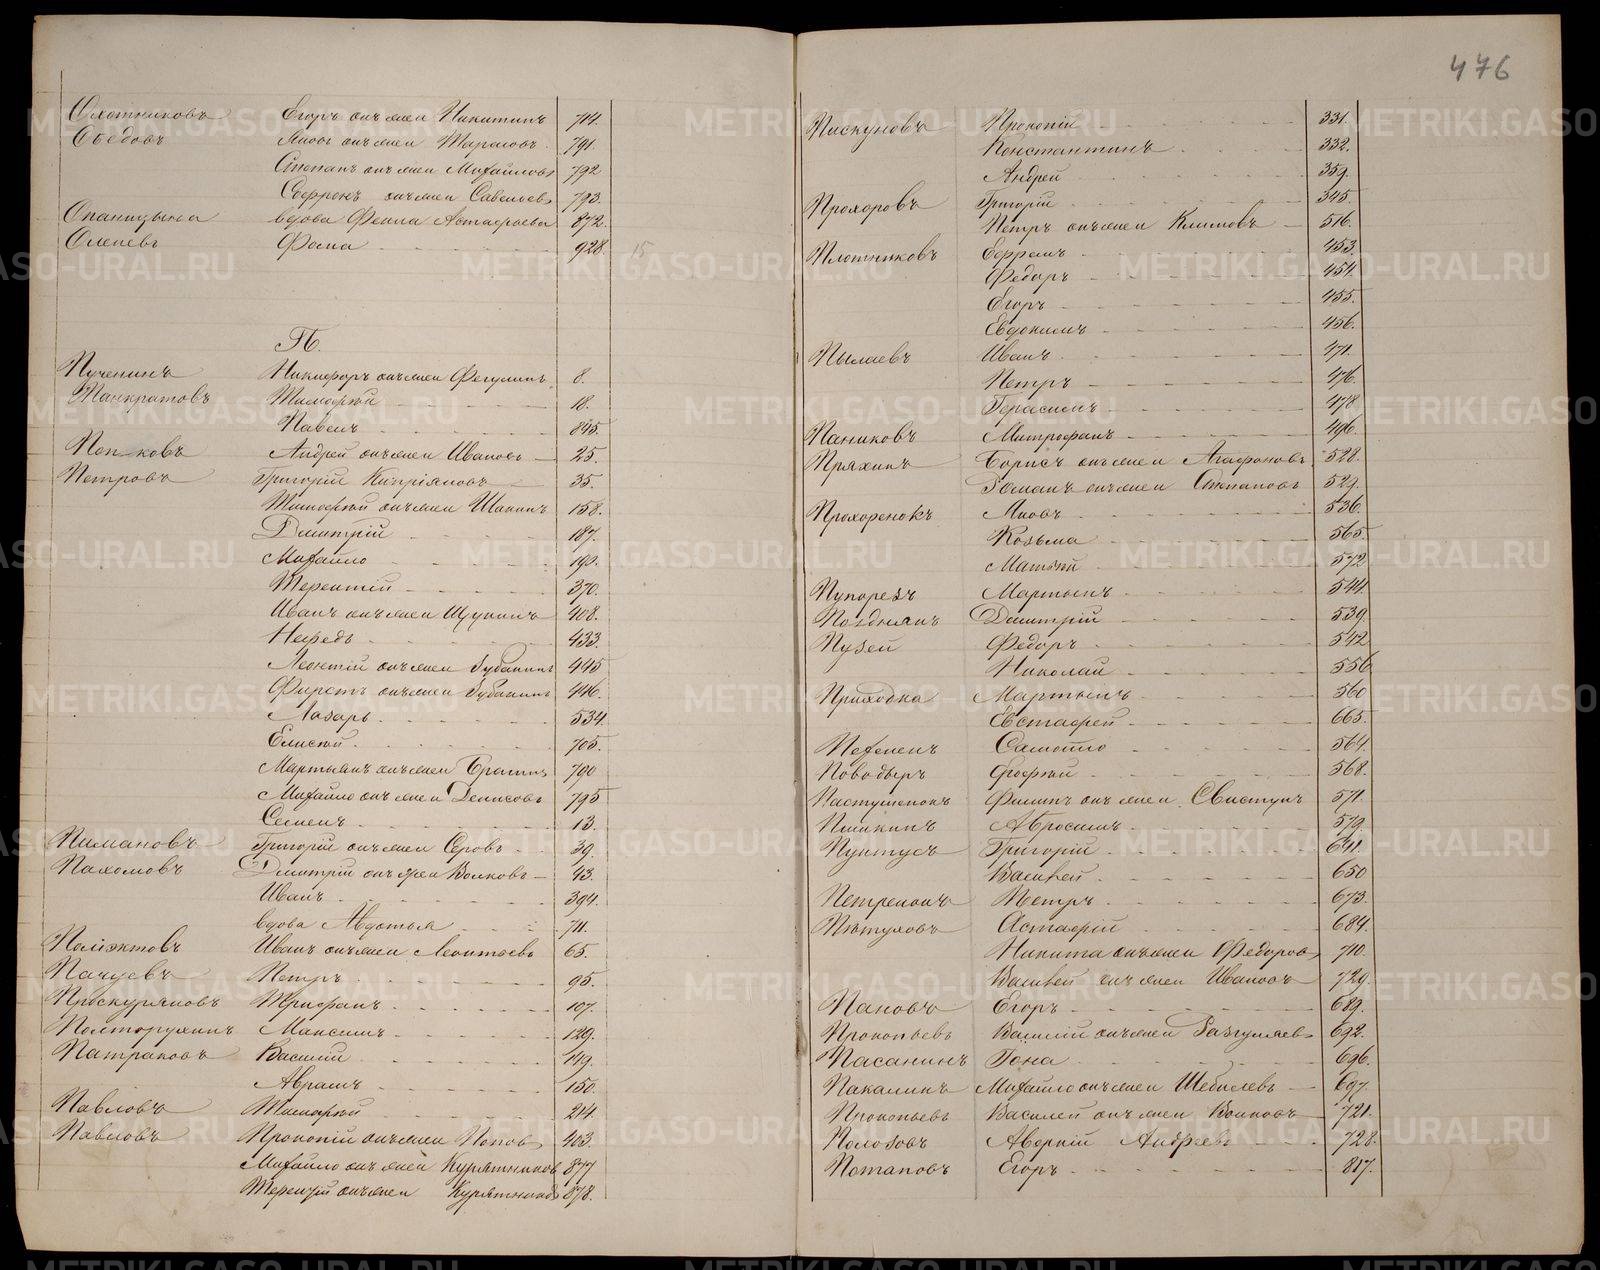 Охотниковъ Егоръ онъ же и Никитинъ 714.
Обѣдовъ Яковъ онъ же и Тарасовъ 791.
Степанъ онъ же и Михайловъ 792
Софронъ онъ же и Савельевъ 793.
Опаницына вдова Фекла Астафьева 872.
Оленевъ Фома 928. 15
П.
Пученинъ Никифоръ онъ же и 8.
Панкратовъ Тимофѣй 18.
Павелъ 845.
Попковъ Андрей онъ же и Ивановъ 25.
Петровъ Григорій Кипріяновъ 35.
Тимофѣй онъ же и Шанинъ 158.
Дмитрій 187.
Михайло 193.
Терентій 370.
Иванъ онъ же и Щукинъ 408.
Нефедъ 433.
Леонтій онъ же и Зубакинъ 445
Фирстъ онъ же и Зубакинъ 446.
Лазарь 534
Елисѣй 705.
Мартынъ онъ же и 790
Михайло онъ же и Денисовъ 795
Семенъ 13.
Пимановъ Григорій онъ же и Серовъ 39.
Пахомовъ Дмитрій онъ же и Волковъ 43.
Иванъ 394.
вдова Авдотья 711.
Поліэктовъ Иванъ онъ же и Леонтьевъ 65.
Пачуевъ Петръ 95.
Проскуряковъ Трифанъ 107.
Полторухинъ Максимъ 129.
Патраковъ Василій 149.
Абрамъ 150.
Павловъ Тимофѣй 214.
Павловъ Прокопій онъ же и Поповъ 463.
Михайло онъ же и Курятниковъ 877
Терентій онъ же и Курятниковъ 878.
476
Пискуновъ Прокопій 331.
Константинъ 332.
Андрей 359.
Прохоровъ Григорій 345.
Петръ онъ же и Климовъ 516.
Плотниковъ Ефремъ 453.
Федоръ 454.
Егоръ 455.
Евдокимъ 456.
Пылаевъ Иванъ 471.
Петръ 476.
Герасимъ 478
Паниковъ Митрофанъ 496.
Пряхинъ Борисъ онъ же и Агафоновъ 528.
Романъ онъ же и Степановъ 529.
Прохоренокъ Яковъ 536.
Козьма 565.
Матвѣй 572
Пупорезъ Мартынъ 544.
Позднякъ Дмитрій 539.
Пузей Федоръ 542
Николай 556
Приходка Мартынъ 560
Евстафей 665.
Пехенекъ Самойло 564.
Поводыръ Ерофѣй 568.
Пастушенокъ Филипъ онъ же и Свистунъ 571.
Пшикинъ Абросимъ 579.
Пунтусъ Григорій 641.
Василей 650
Петренокъ Петръ 673.
Пѣтуховъ Астафій 684.
Никита онъ же и Федоровъ 710.
Василей онъ же и Ивановъ 729.
Пановъ Егоръ 689.
Прокопьевъ Василій онъ же и Разгуляевъ 692.
Пасанинъ Іона 696.
Пакалинъ Михайло онъ же и Шебилевъ 697.
Прокопьевъ Василей онъ же и Волковъ 721.
Полозовъ Аверкій Андреевъ 728.
Потаповъ Егоръ 817.